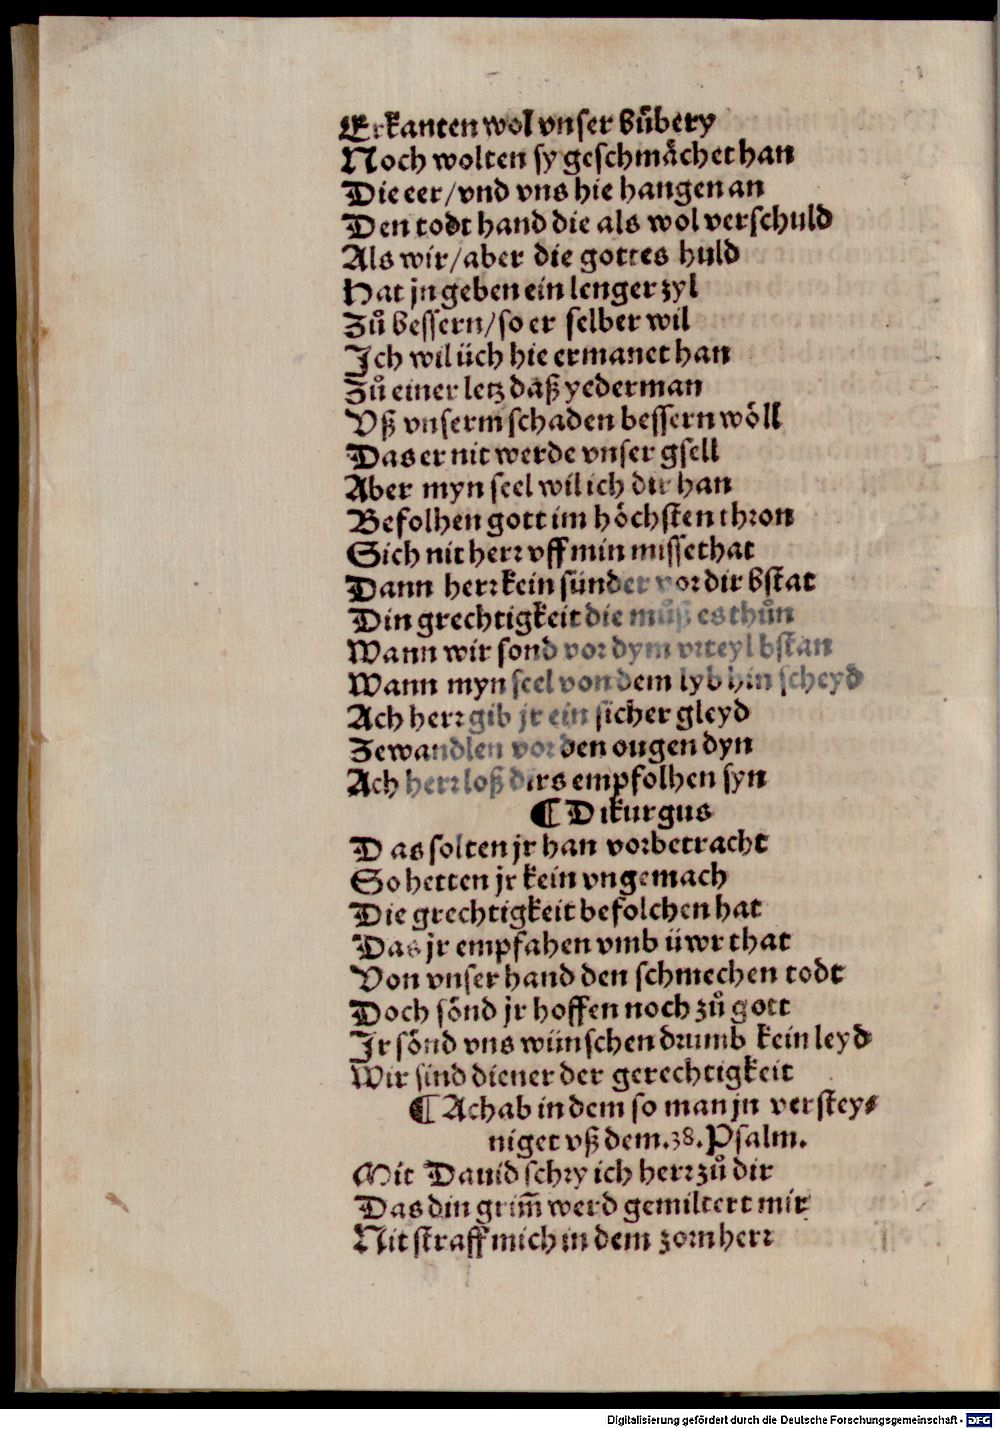 Erkanten wol vnser bůbery
Noch wolten sy geschmächet han
Die eer / vnd vns hie hangen an
Den todt hand die als wol verschuld
Als wir / aber die gottes huld
Hat jn geben ein lenger zyl
Zů bessern / so er selber wil
Ich wil üch hie ermanet han
Zů einer letz daß yederman
Vß vnserm schaden bessern wöll
Das er nit werde vnser gsell
Aber myn seel wil ich dir han
Befolhen gott im höchsten thron
Sich nit herr vff min missethat
Dann herr kein sünder vor dir bstat
Din grechtigkeit die můß es thůn
Wann wir sond vor dym vrteyl bstan
Wann myn seel von dem lyb hin scheyd
Ach herr gib jr ein sicher gleyd
Zewandlen vor den ougen dyn
Ach herr loß dirs empfolhen syn
¶ Dikurgus
Das solten jr han vorbetracht
So hetten jr kein vngemach
Die grechtigkeit befolchen hat
Das jr empfahen vmb üwr that
Von vnser hand den schmechen todt
Doch sönd jr hoffen noch zů gott
Ir sönd vns wünschen drumb kein leyd
Wir sind diener der gerechtigkeit
¶ Achab in dem so man jn verstey⸗
niget vß dem .38. Psalm.
Mit Dauid schry ich herr zů dir
Das din grim̄ werd gemiltert mir
Nit straff mich in dem zorn herr
Digitalisierung gefördert durch die Deutsche Forschungsgemeinschaft - DFG